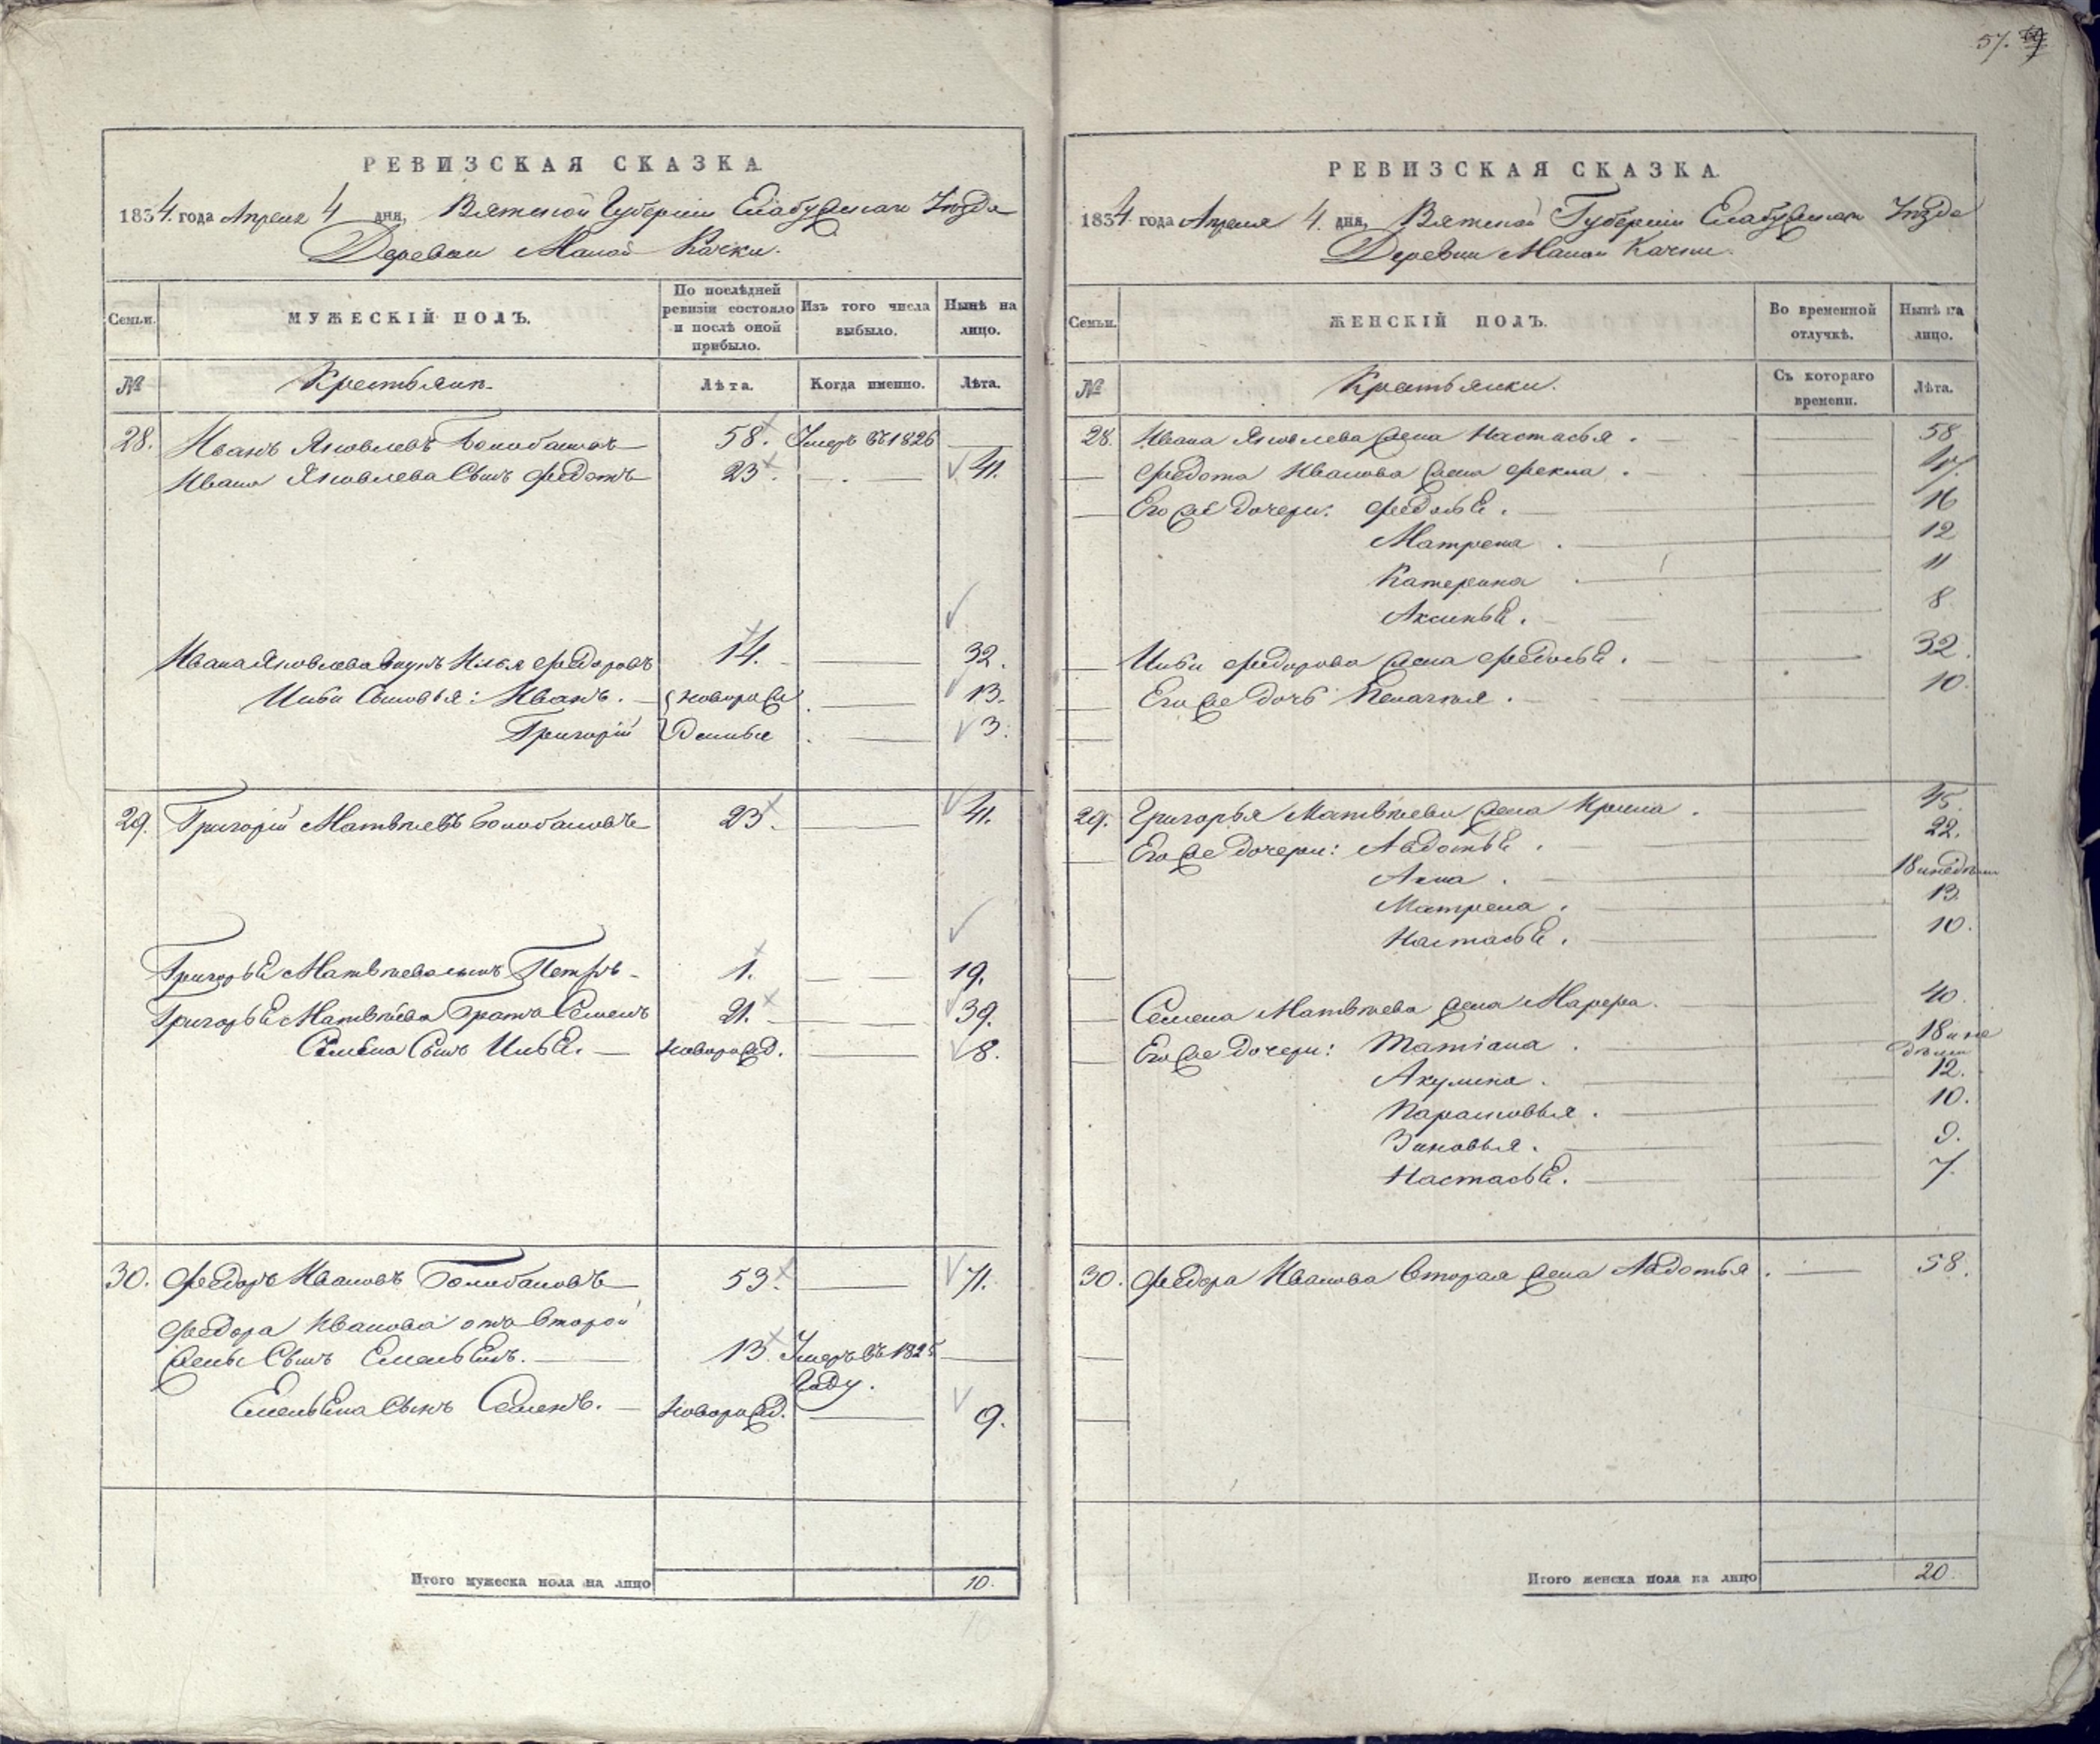 57.
РЕВИЗСКАЯ СКАЗКА
1834. года Апреля 4 дня, Вятской Губернии Елабужскаго Уѣзда
Деревни Малой Качки.
Семьи.
МУЖЕСКІЙ ПОЛЪ.
По послѣдней ревизіи состояло и послѣ оной прибыло.
Изъ того числа выбыло.
Нынѣ на лицо.
№
Крестьянъ.
Лѣта.
Когда именно.
Лѣта.
28. Иванъ Яковлевъ 58. Умеръ въ 1826
Ивана Яковлева Сынъ Федотъ 23. 41.
Ивана Яковлева внукъ Илья Федоровъ 14. 32.
Ильи Сыновья: Иванъ. новорож 13.
Григорій денные 3.
29. Григорій Матвѣевъ Болобановъ 23. 41.
Григорья Матвѣева сынъ Петръ 1. 19.
Григорья Матвѣева Братъ Семенъ 21. 39.
Семена Сынъ Илья. новорожд. 8.
30. Федоръ Ивановъ Болобановъ 53. 71.
Федора Иванова отъ второй
жены Сынъ Емельянъ. 13. Умеръ въ 1825
году.
Емельяна Сынъ Семенъ. новорожд. 9.
Итого мужеска пола на лицо 10.
РЕВИЗСКАЯ СКАЗКА.
1834 года Апреля 4. дня, Вятской Губерніи Елабужскаго Уѣзда
Деревни Малой Качки.
Семьи.
ЖЕНСКІЙ ПОЛЪ.
Во временной отлучкѣ.
Нынѣ на лицо.
№
Крестьянки.
Съ котораго времени.
Лѣта.
28. Ивана Яковлева жена Настасья. 58
Федота Иванова жена Фекла.
Его же дочери: Федосья. 16
Матрена. 12
Катерина 11
Аксинья. 8
Ильи Федорова жена Федосья. 32.
Его же дочь Пелагея. 10.
29. Григорья Матвѣева жена Ирина. 45.
Его же дочери: Авдотья. 22.
Анна. 18 и недѣли
Матрена. 13.
Настасья. 10.
Семена Матвѣева жена Марфа. 40.
Его же дочери: Татіана. 18 и не
дѣли
Акулина. 12.
Парасковья. 10.
Зиновья. 9.
Настасья. 7.
30. Федора Иванова вторая жена Авдотья. 58.
Итого женска пола на лицо 20.